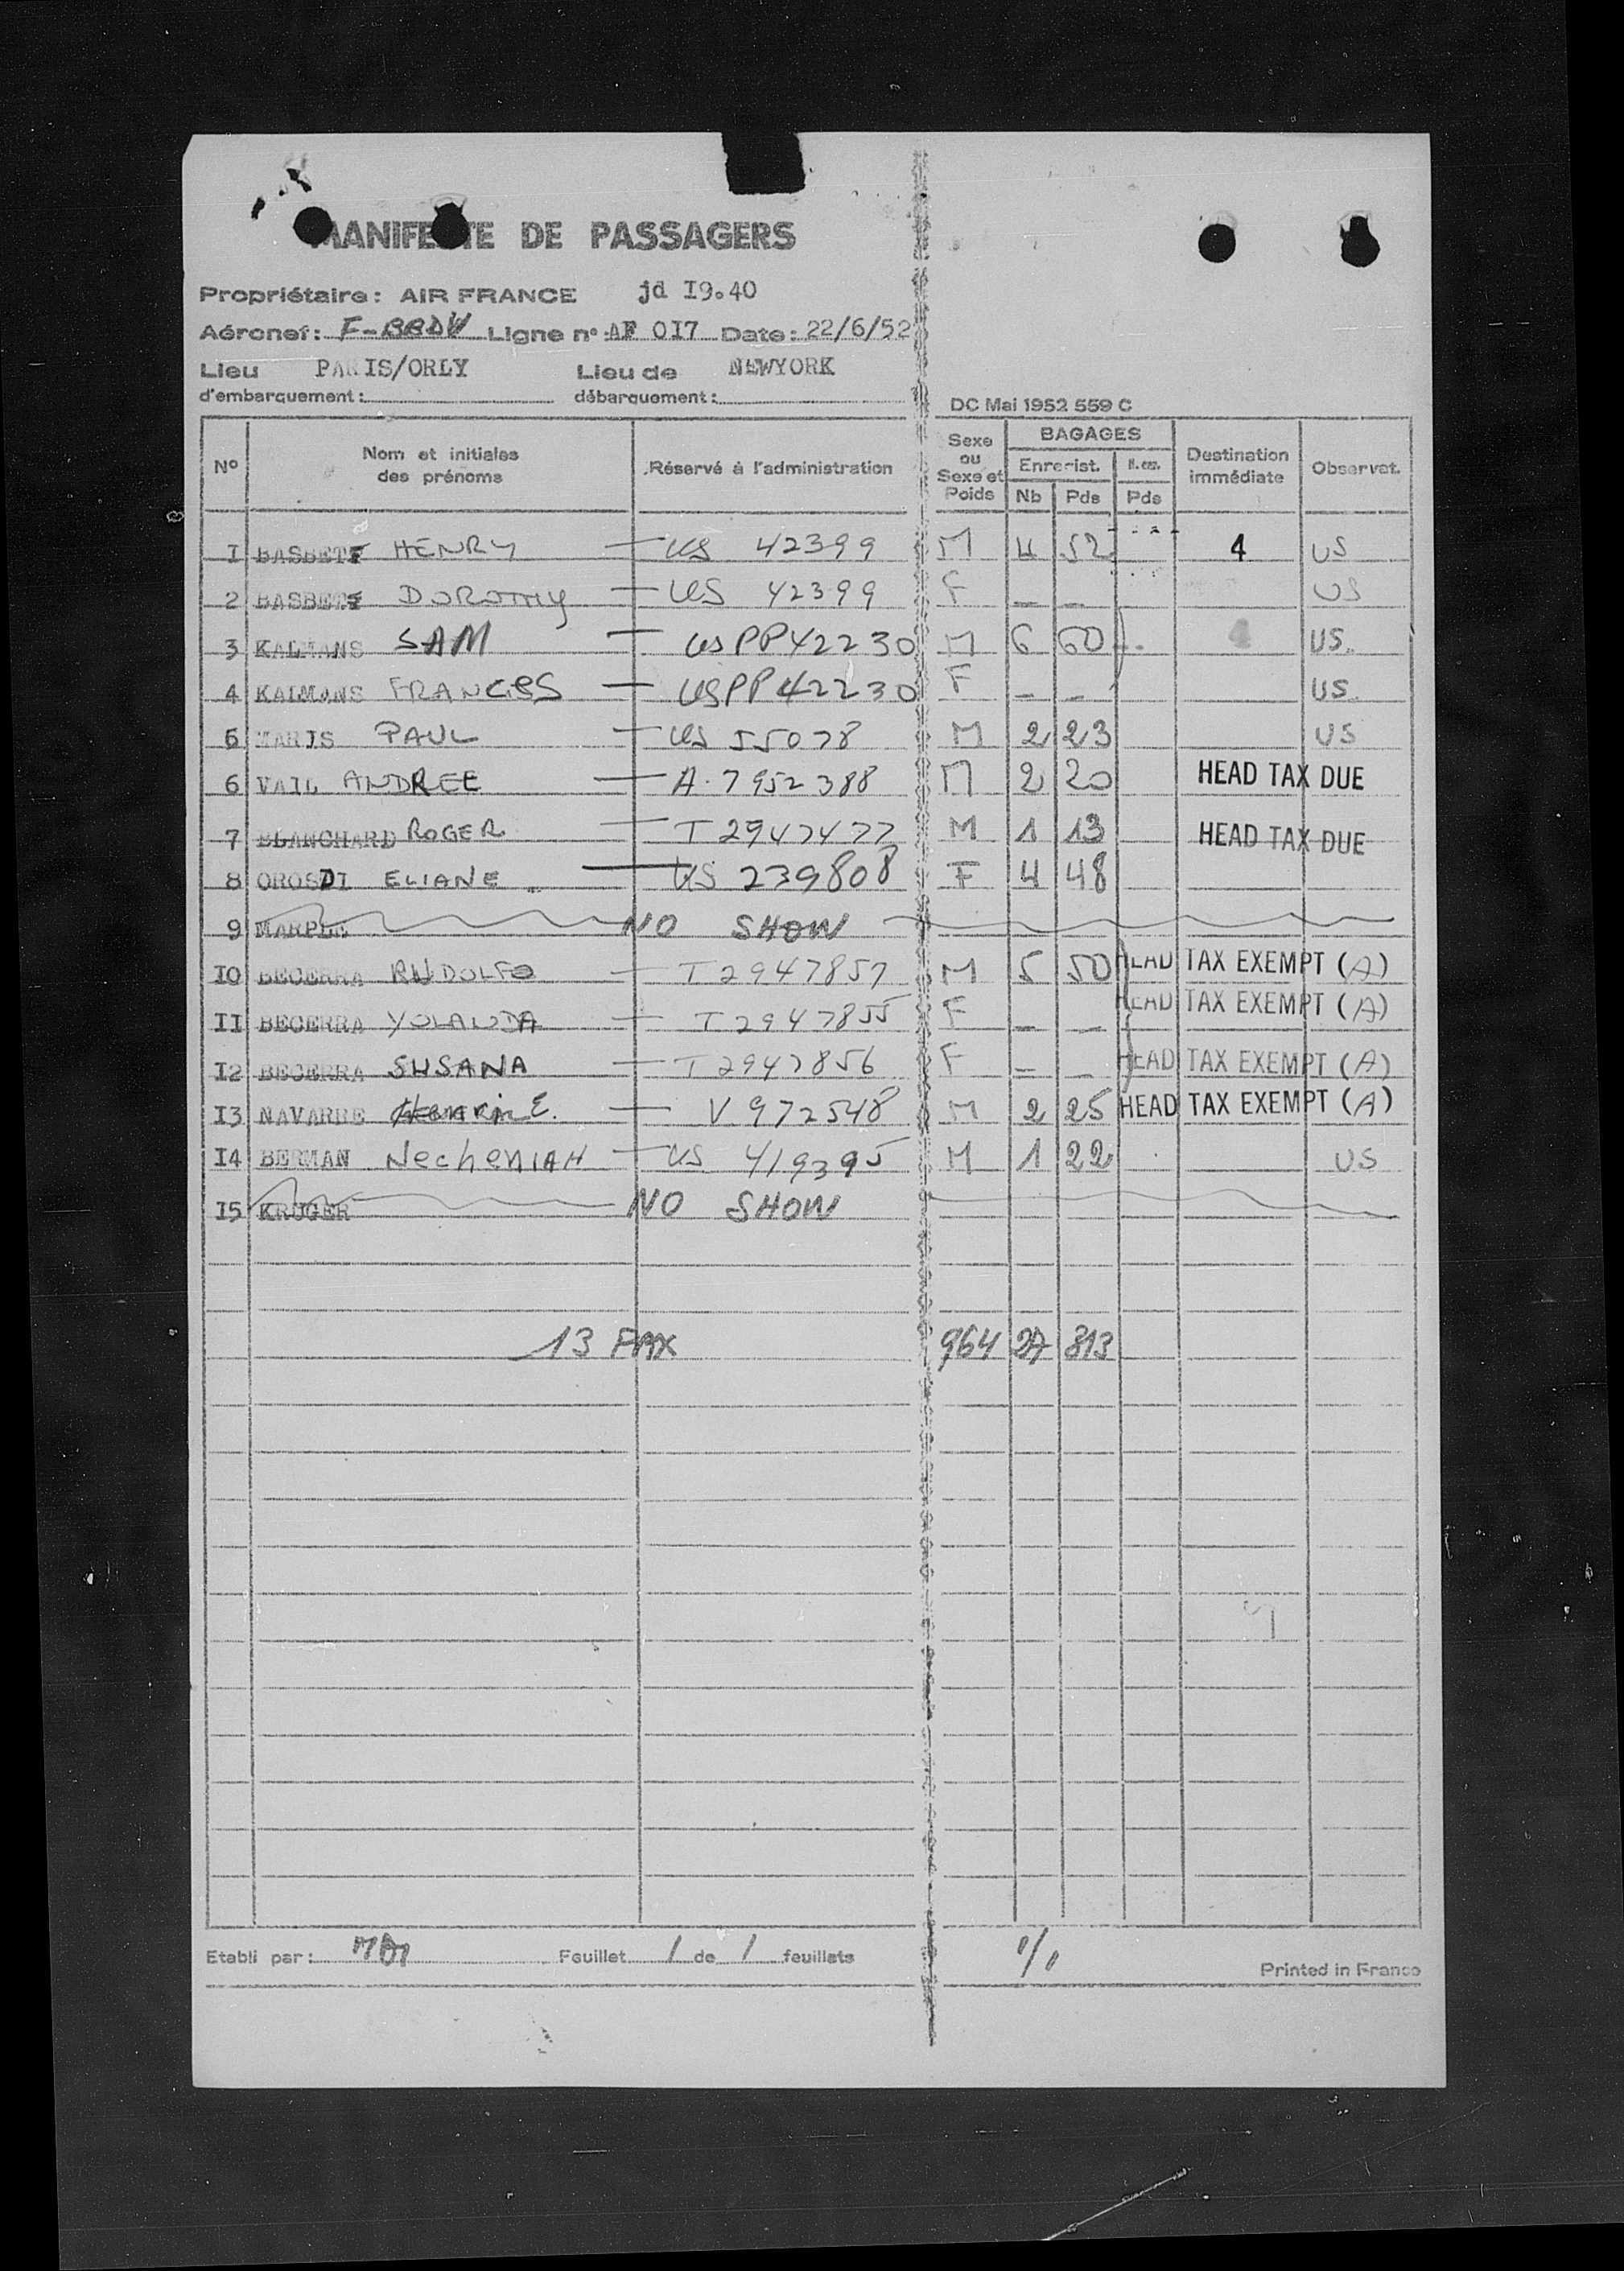 MANIFESTE DE PASSAGERS
Propriétaire: AIR FRANCE jd I9.40
Aéronef: F-BBDV Ligne n° AF 0I7 Date: 22/6/52
Lieu d'embarquement: PARIS/ORLY Lieu de débarquement: NEWYORK
DC Mai 1952 559 C
N° Nom et initiales des prénoms Réservé à l'administration Sexe ou Sexe et Poids BAGAGES Enregist. Nb Pds Pds Destination immédiate Observat.
I HENRY — US 42399 M 4 52 4 US
2 DOROTHY — US 42399 F — — US
3 KALMANS SAM — US PP42230 M 6 60 US.
4 KALMANS FRANCES — US PP42230 F — — US.
5 MARIS PAUL — US 55078 M 2 23 US
6 VAIL ANDREE — A.7952388 M 2 20 HEAD TAX DUE
7 BLANCHARD ROGER — T 2947477 M 1 13 HEAD TAX DUE
8 OROSDI ELIANE — US 239808 F 4 48
9 NO SHOW
I0 BECERRA RUDOLFO — T 2947857 M 5 50 HEAD TAX EXEMPT (A)
II BECERRA YOLANDA — T 2947855 F — — HEAD TAX EXEMPT (A)
I2 BECERRA SUSANA — T 2947856 F — — HEAD TAX EXEMPT (A)
I3 NAVARRE E. — V 972548 M 2 25 HEAD TAX EXEMPT (A)
I4 BERMAN NecheniAH — US 419395 M 1 22 US
I5 KRUGER NO SHOW
13 PAX 964 27 313
Etabli par: Feuillet 1 de 1 feuillets 1/1
Printed in France